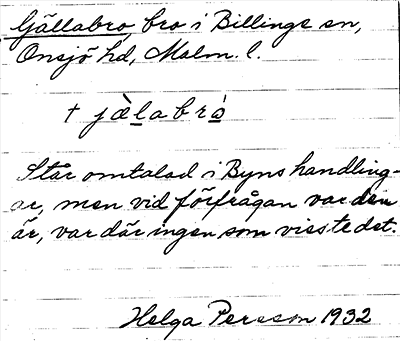 Gällabro, bro i Billinge sn,
Onsjö hd, Malm. l.
† jæ̀labrá
Står omtalad i Byns handling-
ar, men vid förfrågan var den
är, var där ingen som visste det.
Helga Persson 1932